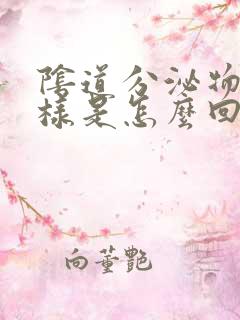 陰道分泌物
樣是怎麼回
向董艷